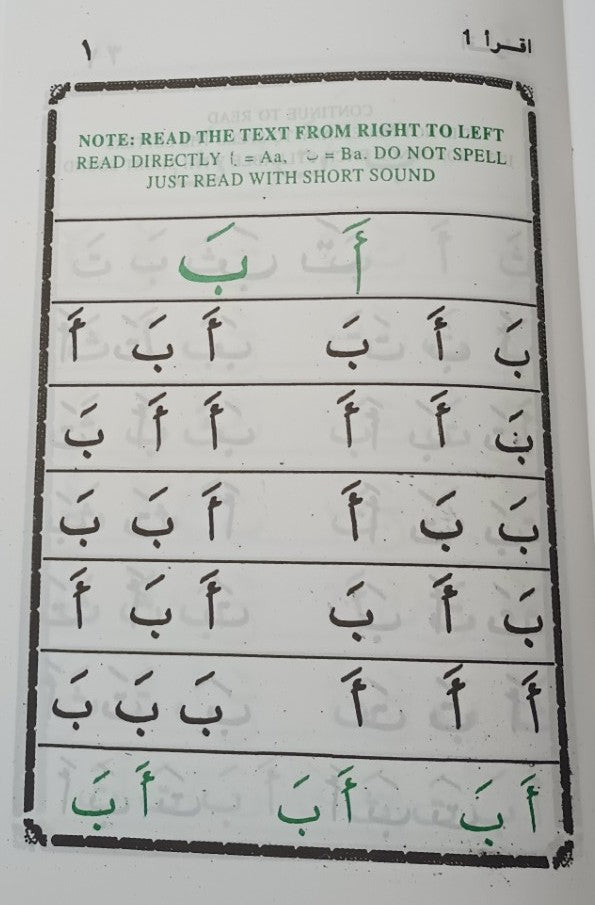 اقرأ 1 ١
NOTE: READ THE TEXT FROM RIGHT TO LEFT
READ DIRECTLY أَ = Aa, بَ = Ba. DO NOT SPELL
JUST READ WITH SHORT SOUND
أَ بَ
بَ أَ بَ أَ بَ أَ
بَ أَ أَ أَ أَ بَ
بَ بَ أَ أَ بَ بَ
بَ أَ بَ أَ بَ أَ
أَ أَ أَ بَ بَ بَ
أَ بَ أَ بَ أَ بَ